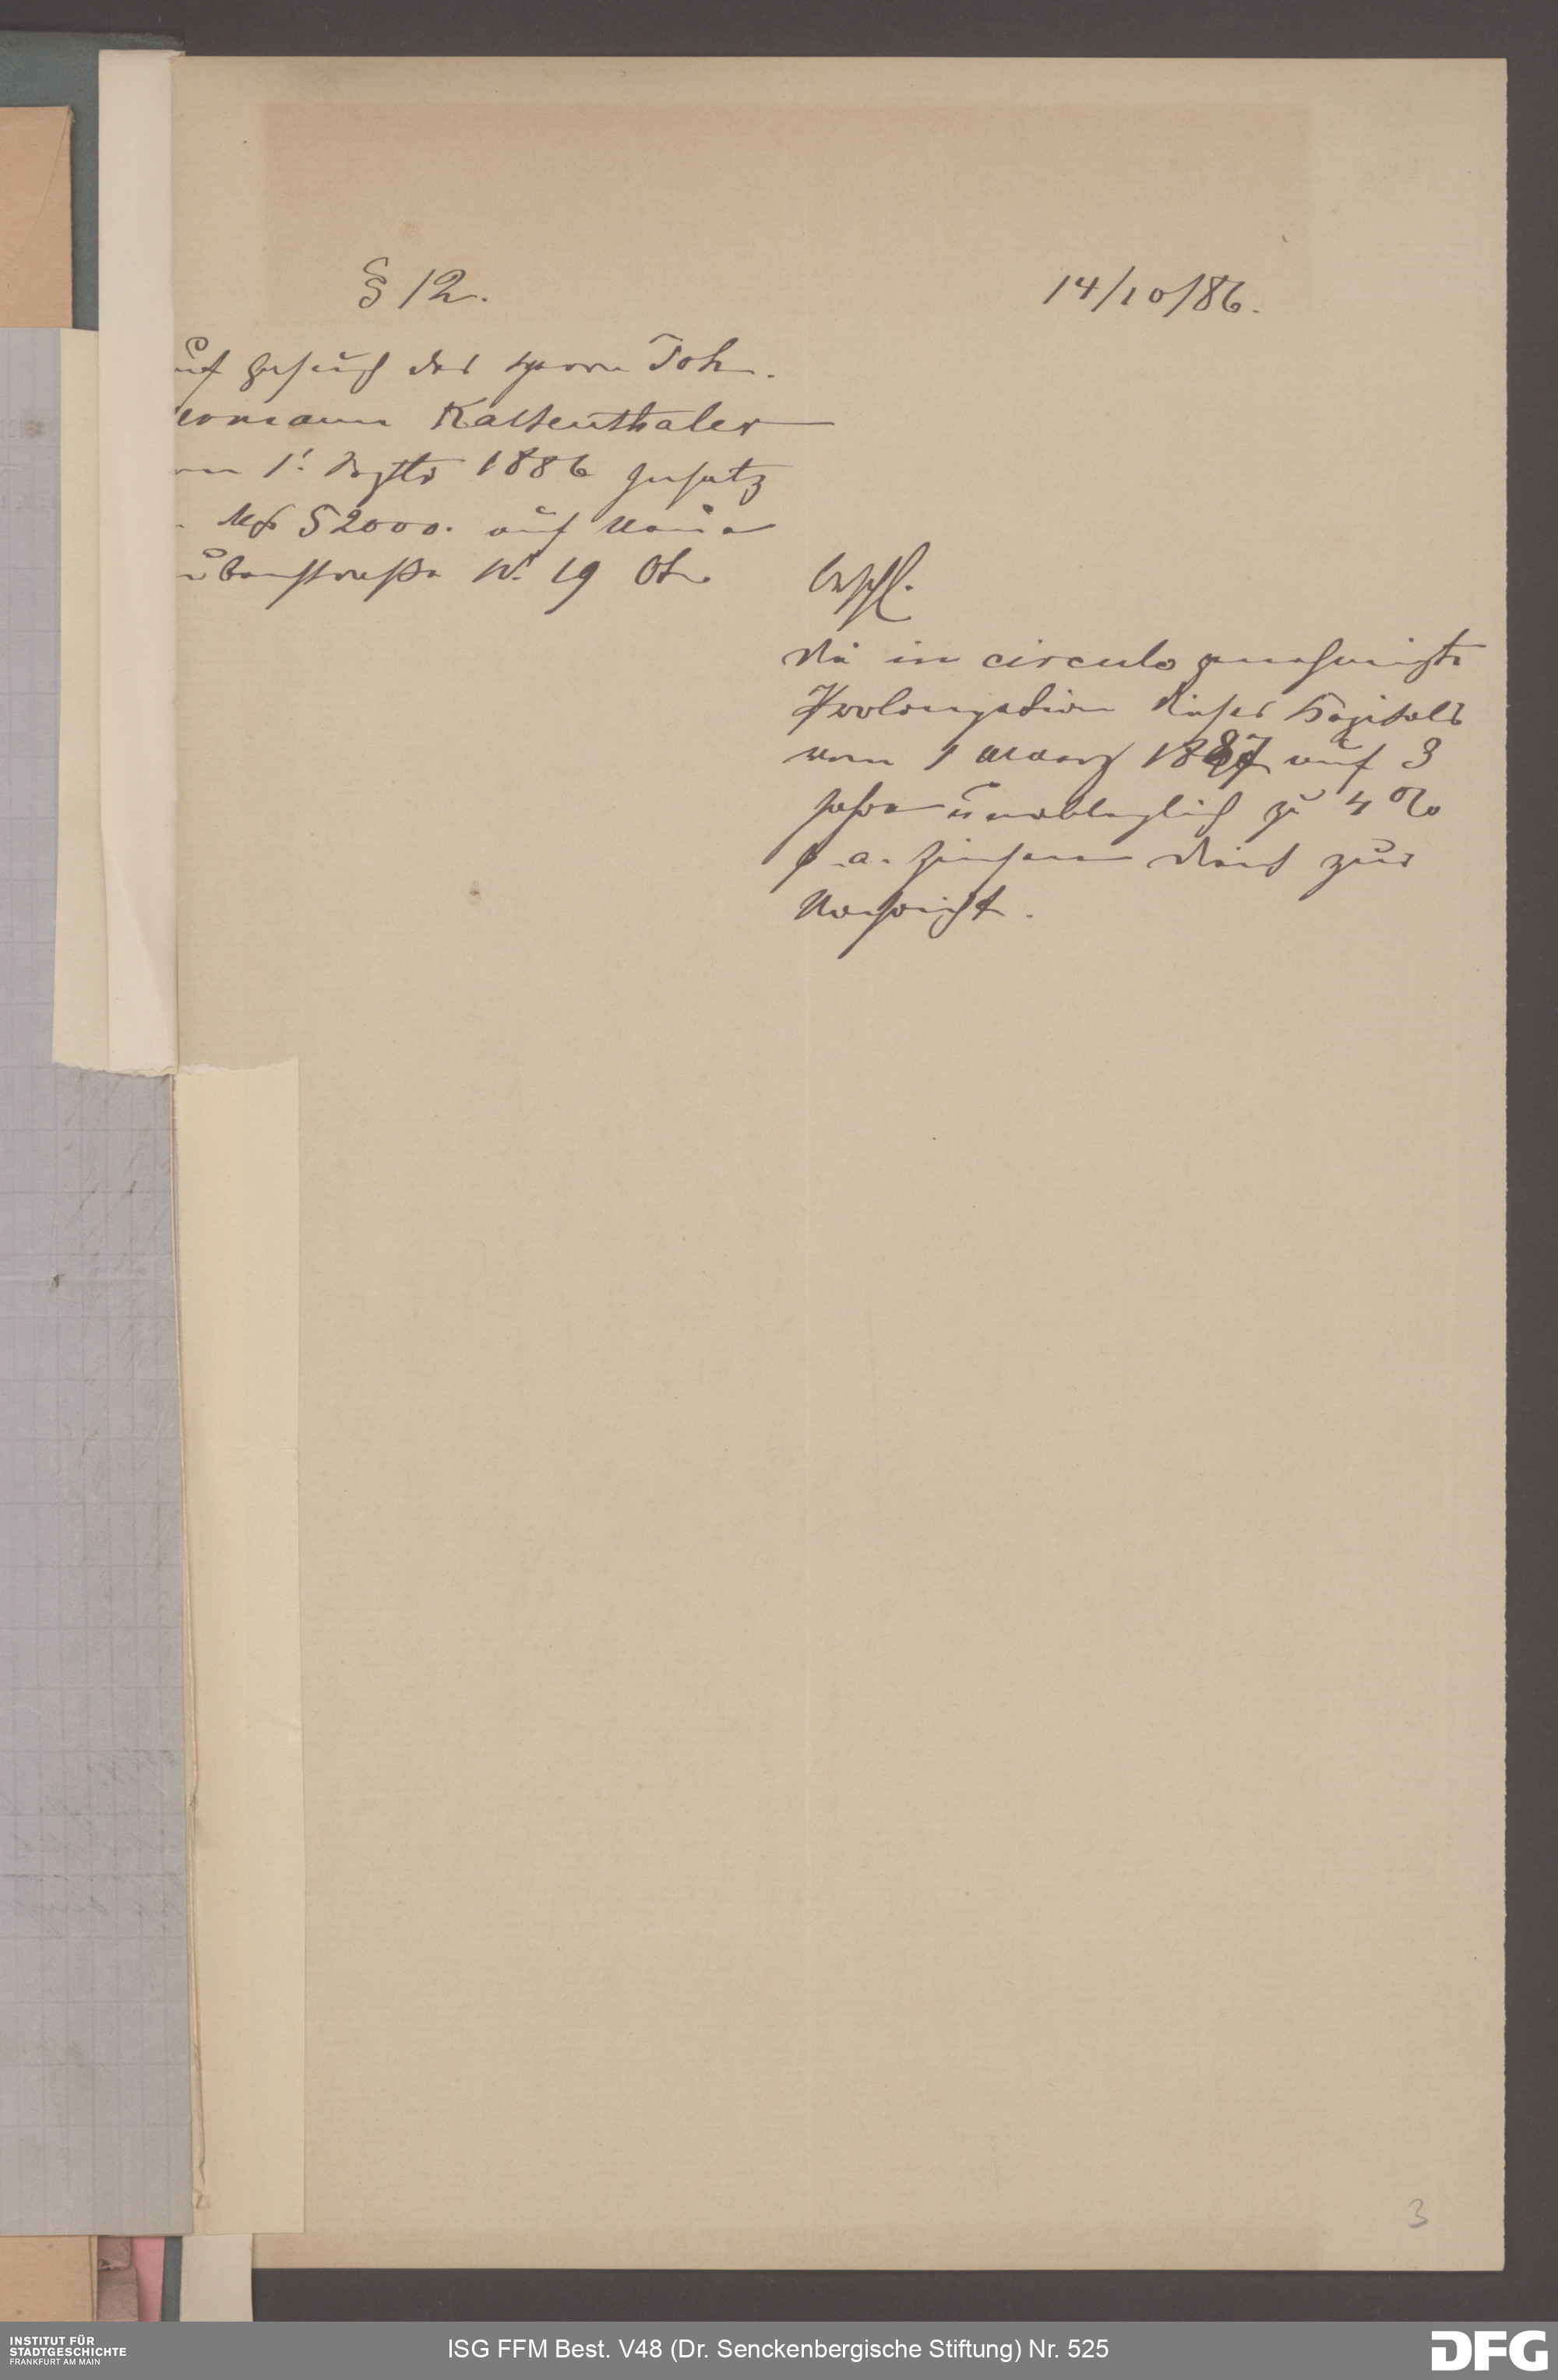 § 12.
14/10/86.
uf Gesuch des Herrn Joh.
ermann Kaltenthaler
m 1. Sptbr 1886 Insatz
Mk 52000. auf Neue
übenstraße N. 19 btr.
Beschl.
Die in circulo genehmigte
Prolongation dieses Kapitals
vom 1 Maerz 1887 auf 3
Jahre unablöglich zu 4 %
p. a. Zinsen dient zur
Nachricht.
3
INSTITUT FÜR
STADTGESCHICHTE
FRANKFURT AM MAIN
ISG FFM Best. V48 (Dr. Senckenbergische Stiftung) Nr. 525
DFG